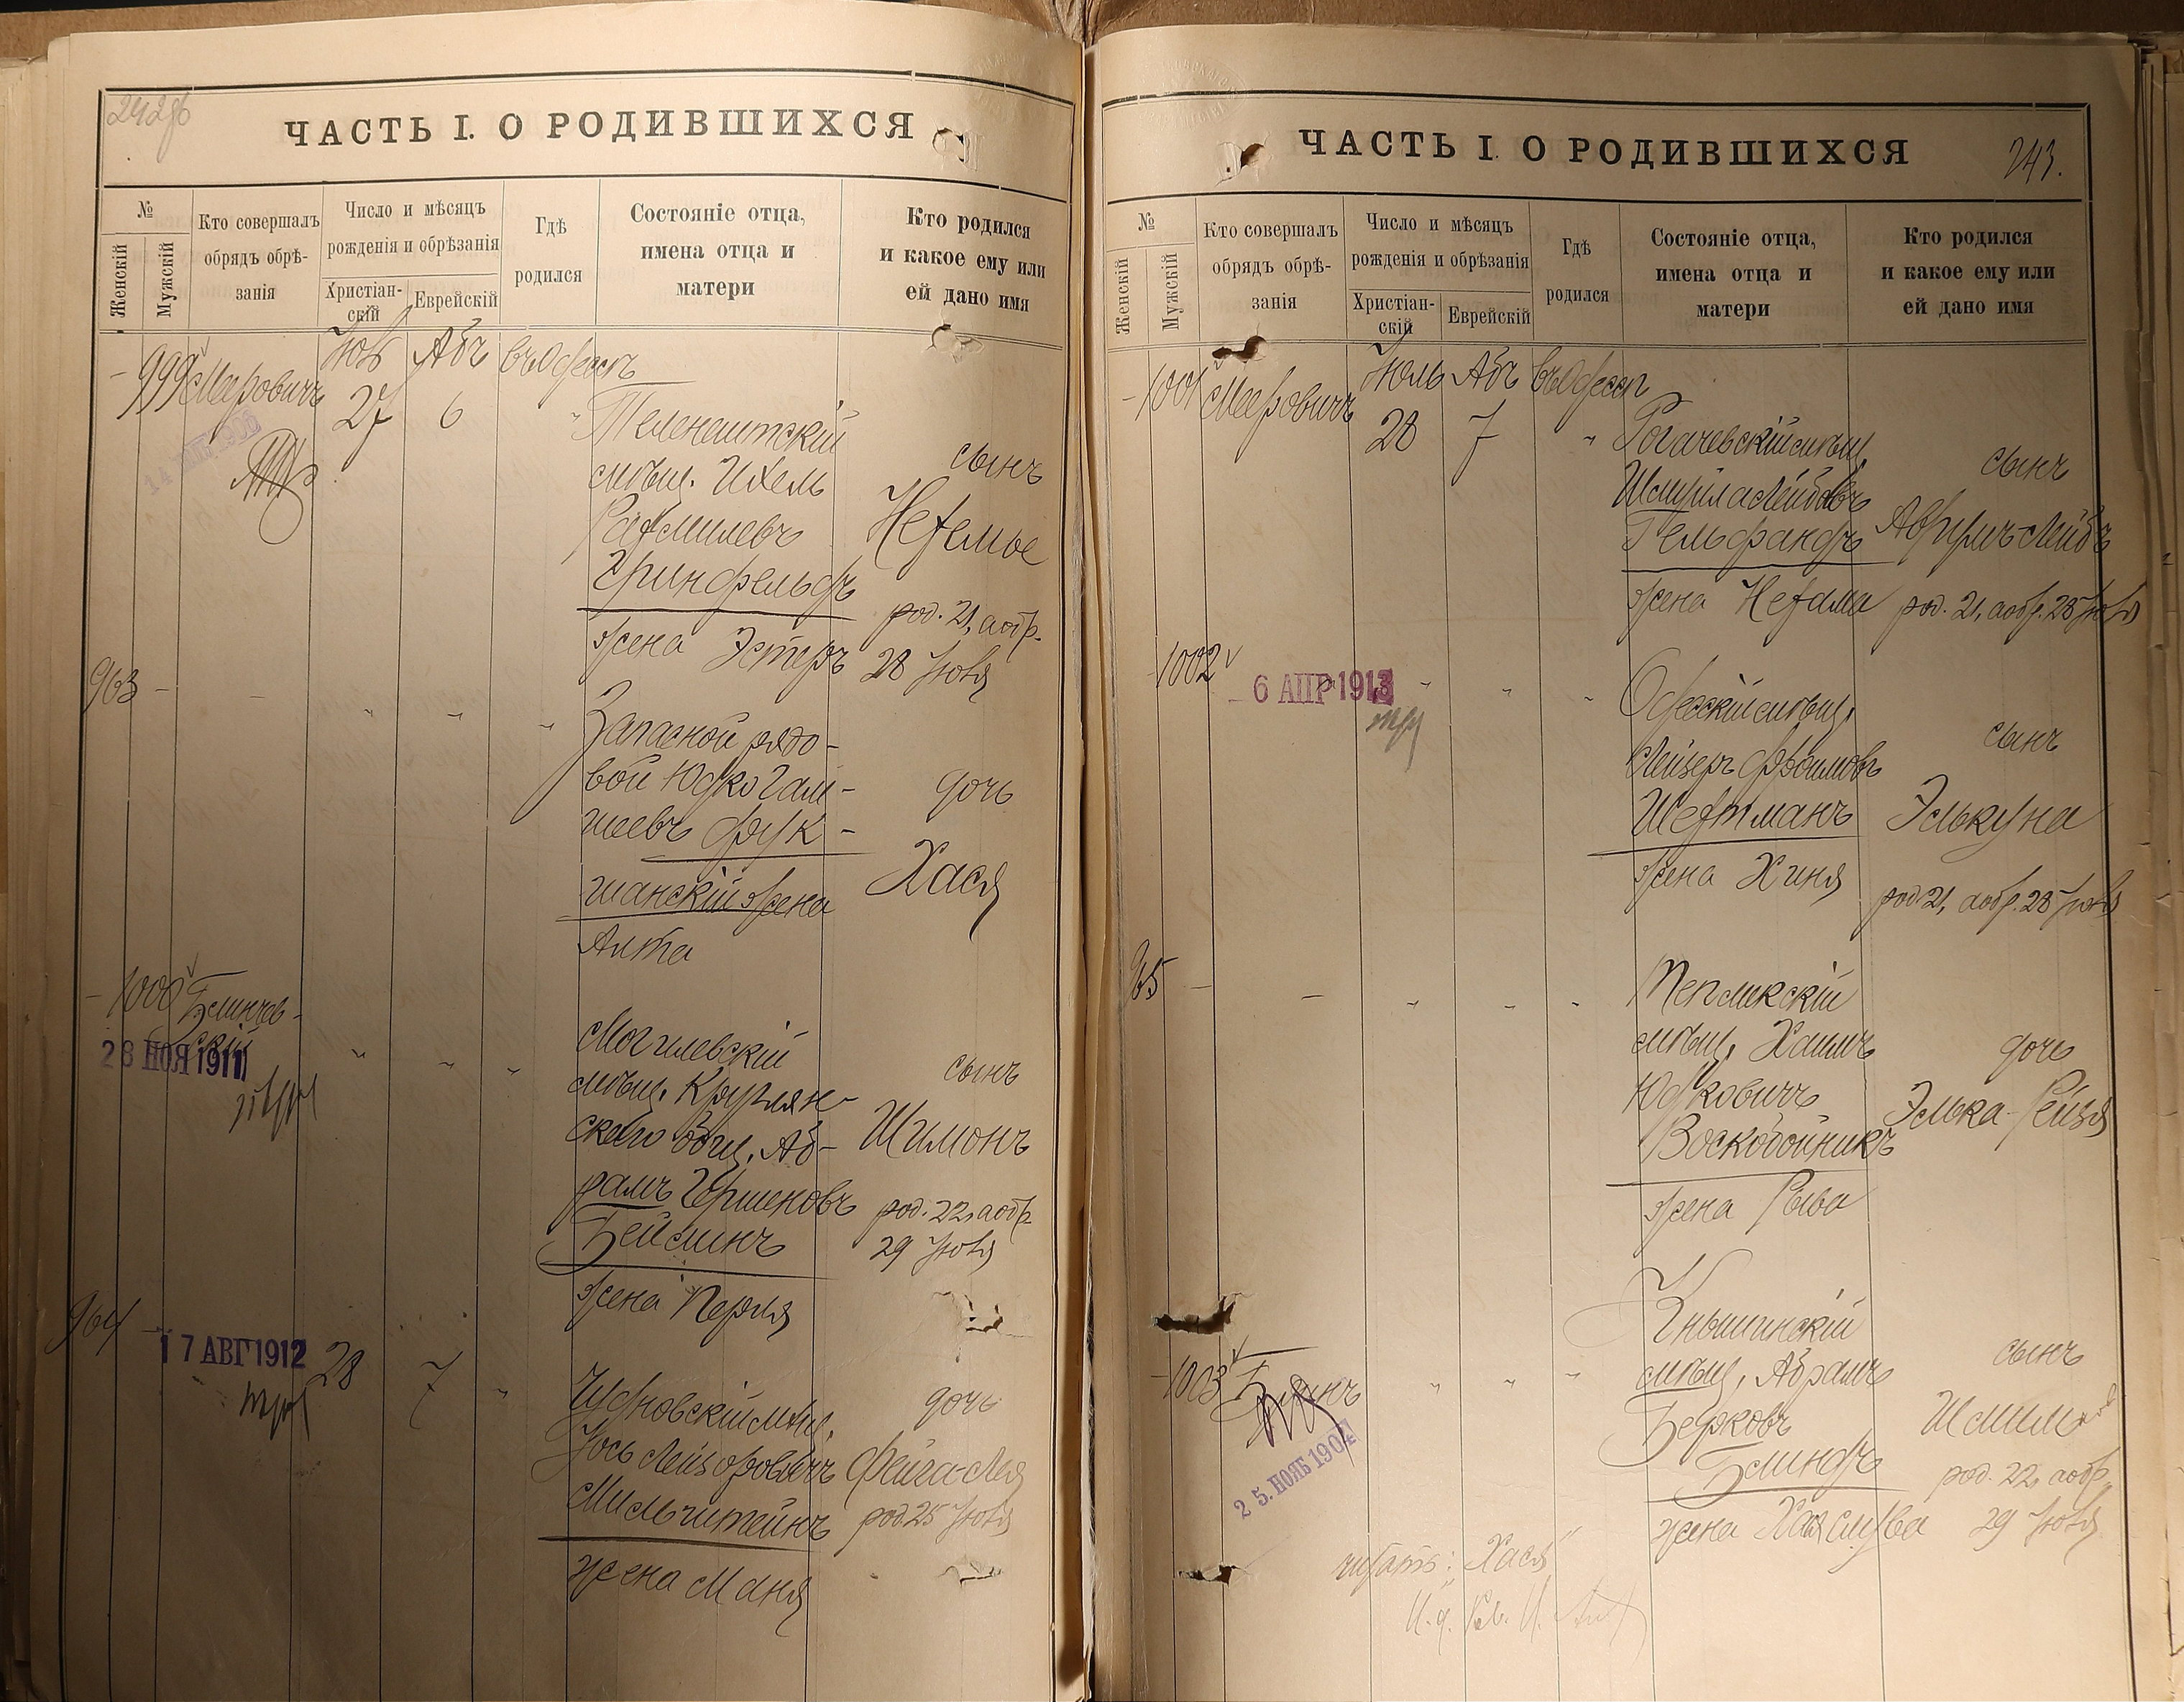 ЧАСТЬ I. О РОДИВШИХСЯ
№
Женскій
Мужскій
Кто совершалъ
обрядъ обрѣ-
занія
Число и мѣсяцъ
рожденія и обрѣзанія
Христіан-
скій
Еврейскій
Гдѣ
родился
Состояніе отца,
имена отца и
матери
Кто родился
и какое ему или
ей дано имя
999 Меерович Абъ въ Одессѣ
27 6
Теленештскій
мѣщ. Ихель
Гринфельдъ
жена Эстеръ
сынъ
Нехемье
род. 21, а обр.
28 Іюля
963
Запасной рядо-
вой Юдко Гам-
шеевъ Фук-
шанскій жена
Алта
дочь
Хася
1000
28 НОЯ 1911
Могилевскій
мѣщ. Круглян-
скаго общ. Аб-
рамъ Гершеновъ
Бейлинъ
жена Перля
сынъ
Шимонъ
род. 22, а обр.
29 Іюля
964
17 АВГ 1912
28 7
Чудновскій мѣщ.
Мильштейнъ
жена Маня
дочь
Фейга-Лея
род. 25 Іюля
ЧАСТЬ I. О РОДИВШИХСЯ
243.
№
Женскій
Мужскій
Кто совершалъ
обрядъ обрѣ-
занія
Число и мѣсяцъ
рожденія и обрѣзанія
Христіан-
скій
Еврейскій
Гдѣ
родился
Состояніе отца,
имена отца и
матери
Кто родился
и какое ему или
ей дано имя
1001 Меерович Іюль Абъ въ Одессѣ
28 7
Рогачевскій мѣщ.
Шмуила Лейбовъ
Гельфандъ
жена Нехама
сынъ
Аврумъ-Лейбъ
род. 21, а обр. 28 Іюля
1002
6 АПР 1913
Одесскій мѣщ.
Лейзеръ Фроимовъ
Шехтманъ
жена Хиня
сынъ
Элькуна
род. 21, а обр. 28 Іюля
965
Тепликскій
мѣщ. Хаимъ
Юдковичъ
Воскобойникъ
жена Рыва
дочь
Элька-Рейзя
1003
25. НОЯБ 1904
Кнышинскій
мѣщ. Абрамъ
Берковъ
Блиндъ
жена Хая
сынъ
род. 22, а обр.
29 Іюля
читать: "Хася"